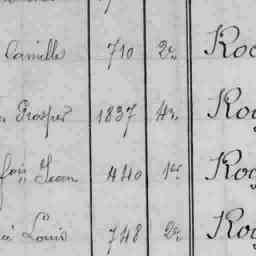 Camille 710 2e Roc
Prosper 1837 4e Rog
Jean 440 1er Rog
Louis 748 2e Rog